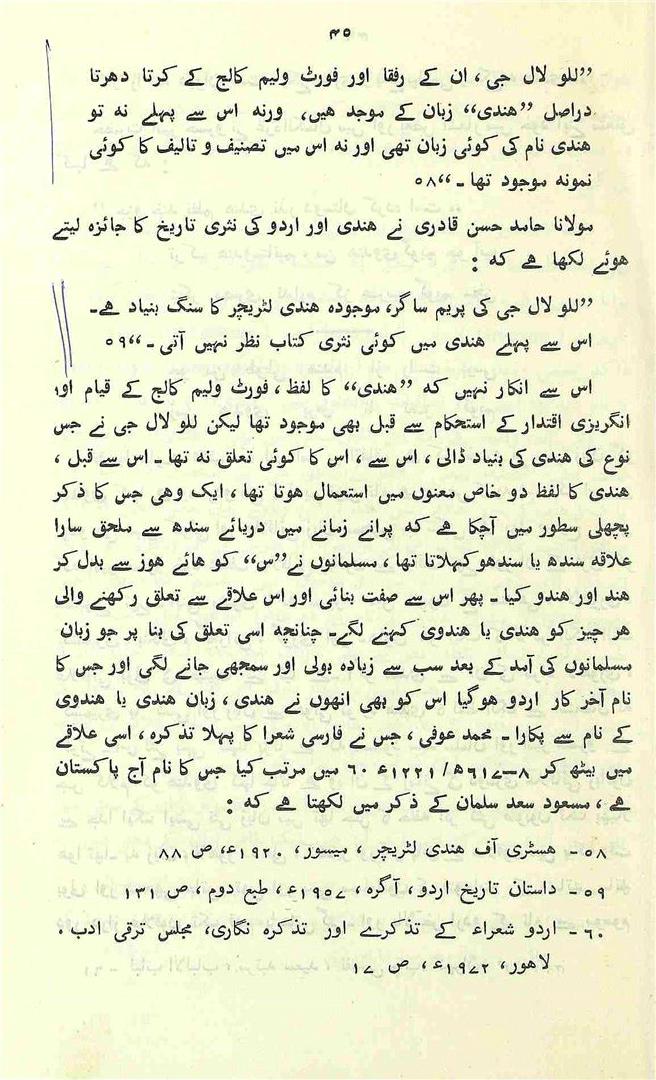 ۴۵
”للو لال جی، ان کے رفقا اور فورٹ ولیم کالج کے کرتا دھرتا
دراصل ”ھندی“ زبان کے موجد ھیں، ورنہ اس سے پہلے نہ تو
ھندی نام کی کوئی زبان تھی اور نہ اس میں تصنیف و تالیف کا کوئی
نمونہ موجود تھا۔“۵۸
مولانا حامد حسن قادری نے ھندی اور اردو کی نثری تاریخ کا جائزہ لیتے
ھوئے لکھا ھے کہ :
”للو لال جی کی پریم ساگر، موجودہ ھندی لٹریچر کا سنگ بنیاد ھے۔
اس سے پہلے ھندی میں کوئی نثری کتاب نظر نہیں آتی۔“۵۹
اس سے انکار نہیں کہ ”ھندی“ کا لفظ، فورٹ ولیم کالج کے قیام اور
انگریزی اقتدار کے استحکام سے قبل بھی موجود تھا لیکن للو لال جی نے جس
نوع کی ھندی کی بنیاد ڈالی، اس سے، اس کا کوئی تعلق نہ تھا۔ اس سے قبل،
ھندی کا لفظ دو خاص معنوں میں استعمال ھوتا تھا، ایک وھی جس کا ذکر
پچھلی سطور میں آچکا ھے کہ پرانے زمانے میں دریائے سندھ سے ملحق سارا
علاقہ سندھ یا سندھو کہلاتا تھا، مسلمانوں نے”س“ کو ھائے ھوز سے بدل کر
ھند اور ھندو کیا۔ پھر اس سے صفت بنائی اور اس علاقے سے تعلق رکھنے والی
ھر چیز کو ھندی یا ھندوی کہنے لگے۔ چنانچہ اسی تعلق کی بنا پر جو زبان
مسلمانوں کی آمد کے بعد سب سے زیادہ بولی اور سمجھی جانے لگی اور جس کا
نام آخر کار اردو ھوگیا اس کو بھی انھوں نے ھندی، زبان ھندی یا ھندوی
کے نام سے پکارا۔ محمد عوفی، جس نے فارسی شعرا کا پہلا تذکرہ، اسی علاقے
میں بیٹھ کر ۸–۶۱۷ھ/۱۲۲۱ء ۶۰ میں مرتب کیا جس کا نام آج پاکستان
ھے، مسعود سعد سلمان کے ذکر میں لکھتا ھے کہ :
۵۸۔ ھسٹری آف ھندی لٹریچر، میسور، ۱۹۲۰ء، ص ۸۸
۵۹۔ داستان تاریخ اردو، آگرہ، ۱۹۵۷ء، طبع دوم، ص ۱۳۱
۶۰۔ اردو شعراء کے تذکرے اور تذکرہ نگاری، مجلس ترقی ادب،
لاھور، ۱۹۷۲ء، ص ۱۷